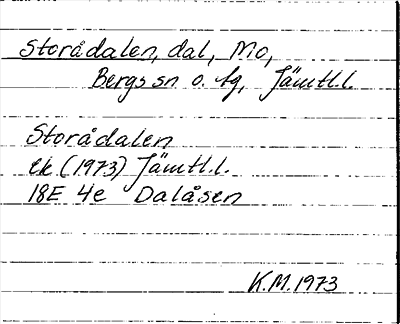 Storådalen, dal, Mo,
Bergs sn o. tg, Jämtl.l.
Storådalen
ek (1973) Jämtl.l.
18E 4e Dalåsen
K.M. 1973